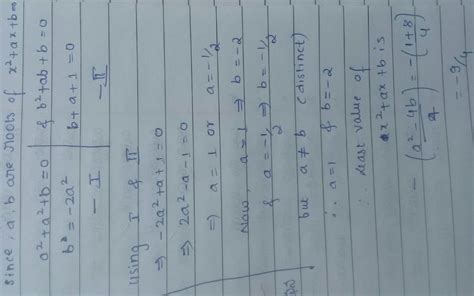 since, a, b are roots of x²+ax+b=0
a²+a²+b=0 & b²+ab+b=0
b=-2a² b+a+1=0
-I -II
Using I & II
⇒ -2a²+a+1=0
⇒ 2a²-a-1=0
⇒ a=1 or a=-1/2
Now, a=1 ⇒ b=-2
& a=-1/2 ⇒ b=-1/2
but a≠b (distinct)
∴ a=1 & b=-2
∴ least value of
x²+ax+b is
-(a²-4b)/4 = -(1+8)/4
= -9/4